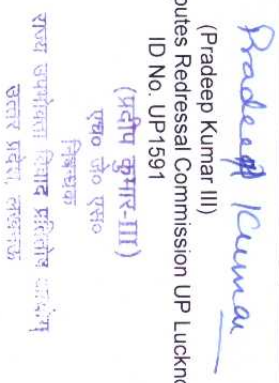 Pradeep Kumar
(Pradeep Kumar III)
putes Redressal Commission UP Luckno
ID No. UP1591
(प्रदीप कुमार-III)
एच० जे० एस०
निबन्धक
राज्य उपभोक्ता विवाद प्रतितोष आयोग
उत्तर प्रदेश, लखनऊ